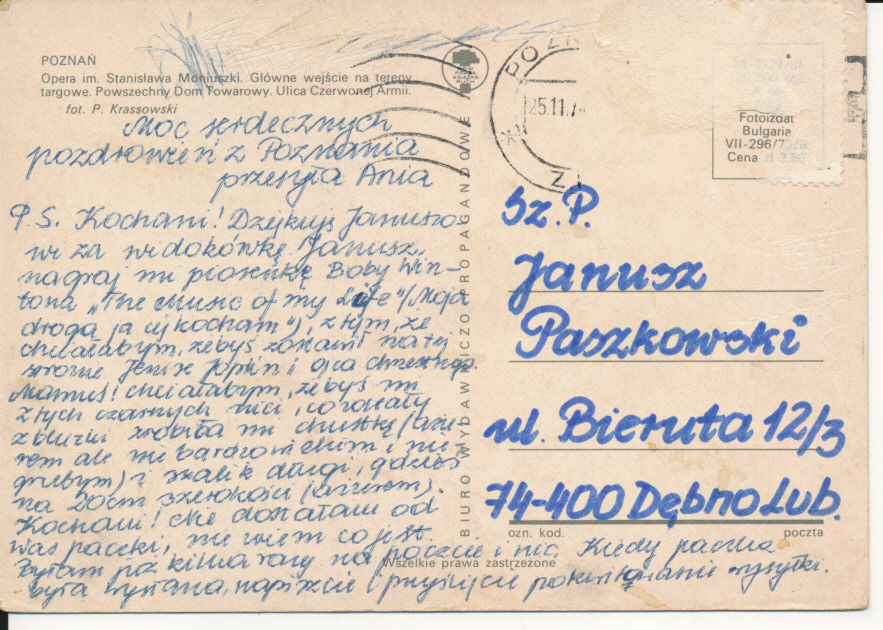 POZNAŃ
Opera im. Stanisława Moniuszki. Główne wejście na tereny
targowe. Powszechny Dom Towarowy. Ulica Czerwonej Armii.
fot. P. Krassowski
Moc serdecznych
pozdrowień z Poznania
przesyła Ania
P.S. Kochani! Dziękuję Januszo-
wi za widokówkę. Janusz,
nagraj mi piosenkę Boby Win-
tona „The Music of my Life"/Moja
droga ja cię kocham"), z tym, że
chciałabym, żebyś zostawił na tej
stronie Jenix Joplin i ojca chrzestnego.
Mamuś! chciałabym, żebyś mi
z tych czarnych nici, co zostały
z bluzki zrobiła mi chustkę
rem ale nie bardzo wielkim i nie
grubym) i szalik długi, gdzieś
na 20cm szerokości
Kochani! Nie dostałam od
Was paczki, nie wiem co jest.
Byłam już kilka razy na poczcie i nic. Kiedy paczka
była wysłana, napiszcie i przyślijcie pokwitowanie wysyłki.
BIURO WYDAWNICZO PROPAGANDOWE
Wszelkie prawa zastrzeżone
POZN
25.11.7
Fotoizdat
Bulgaria
VII-296/73/B
Cena zł 3.60
Sz.P.
Janusz
Paszkowski
ul. Bieruta 12/3
74-400 Dębno Lub.
ozn. kod. poczta